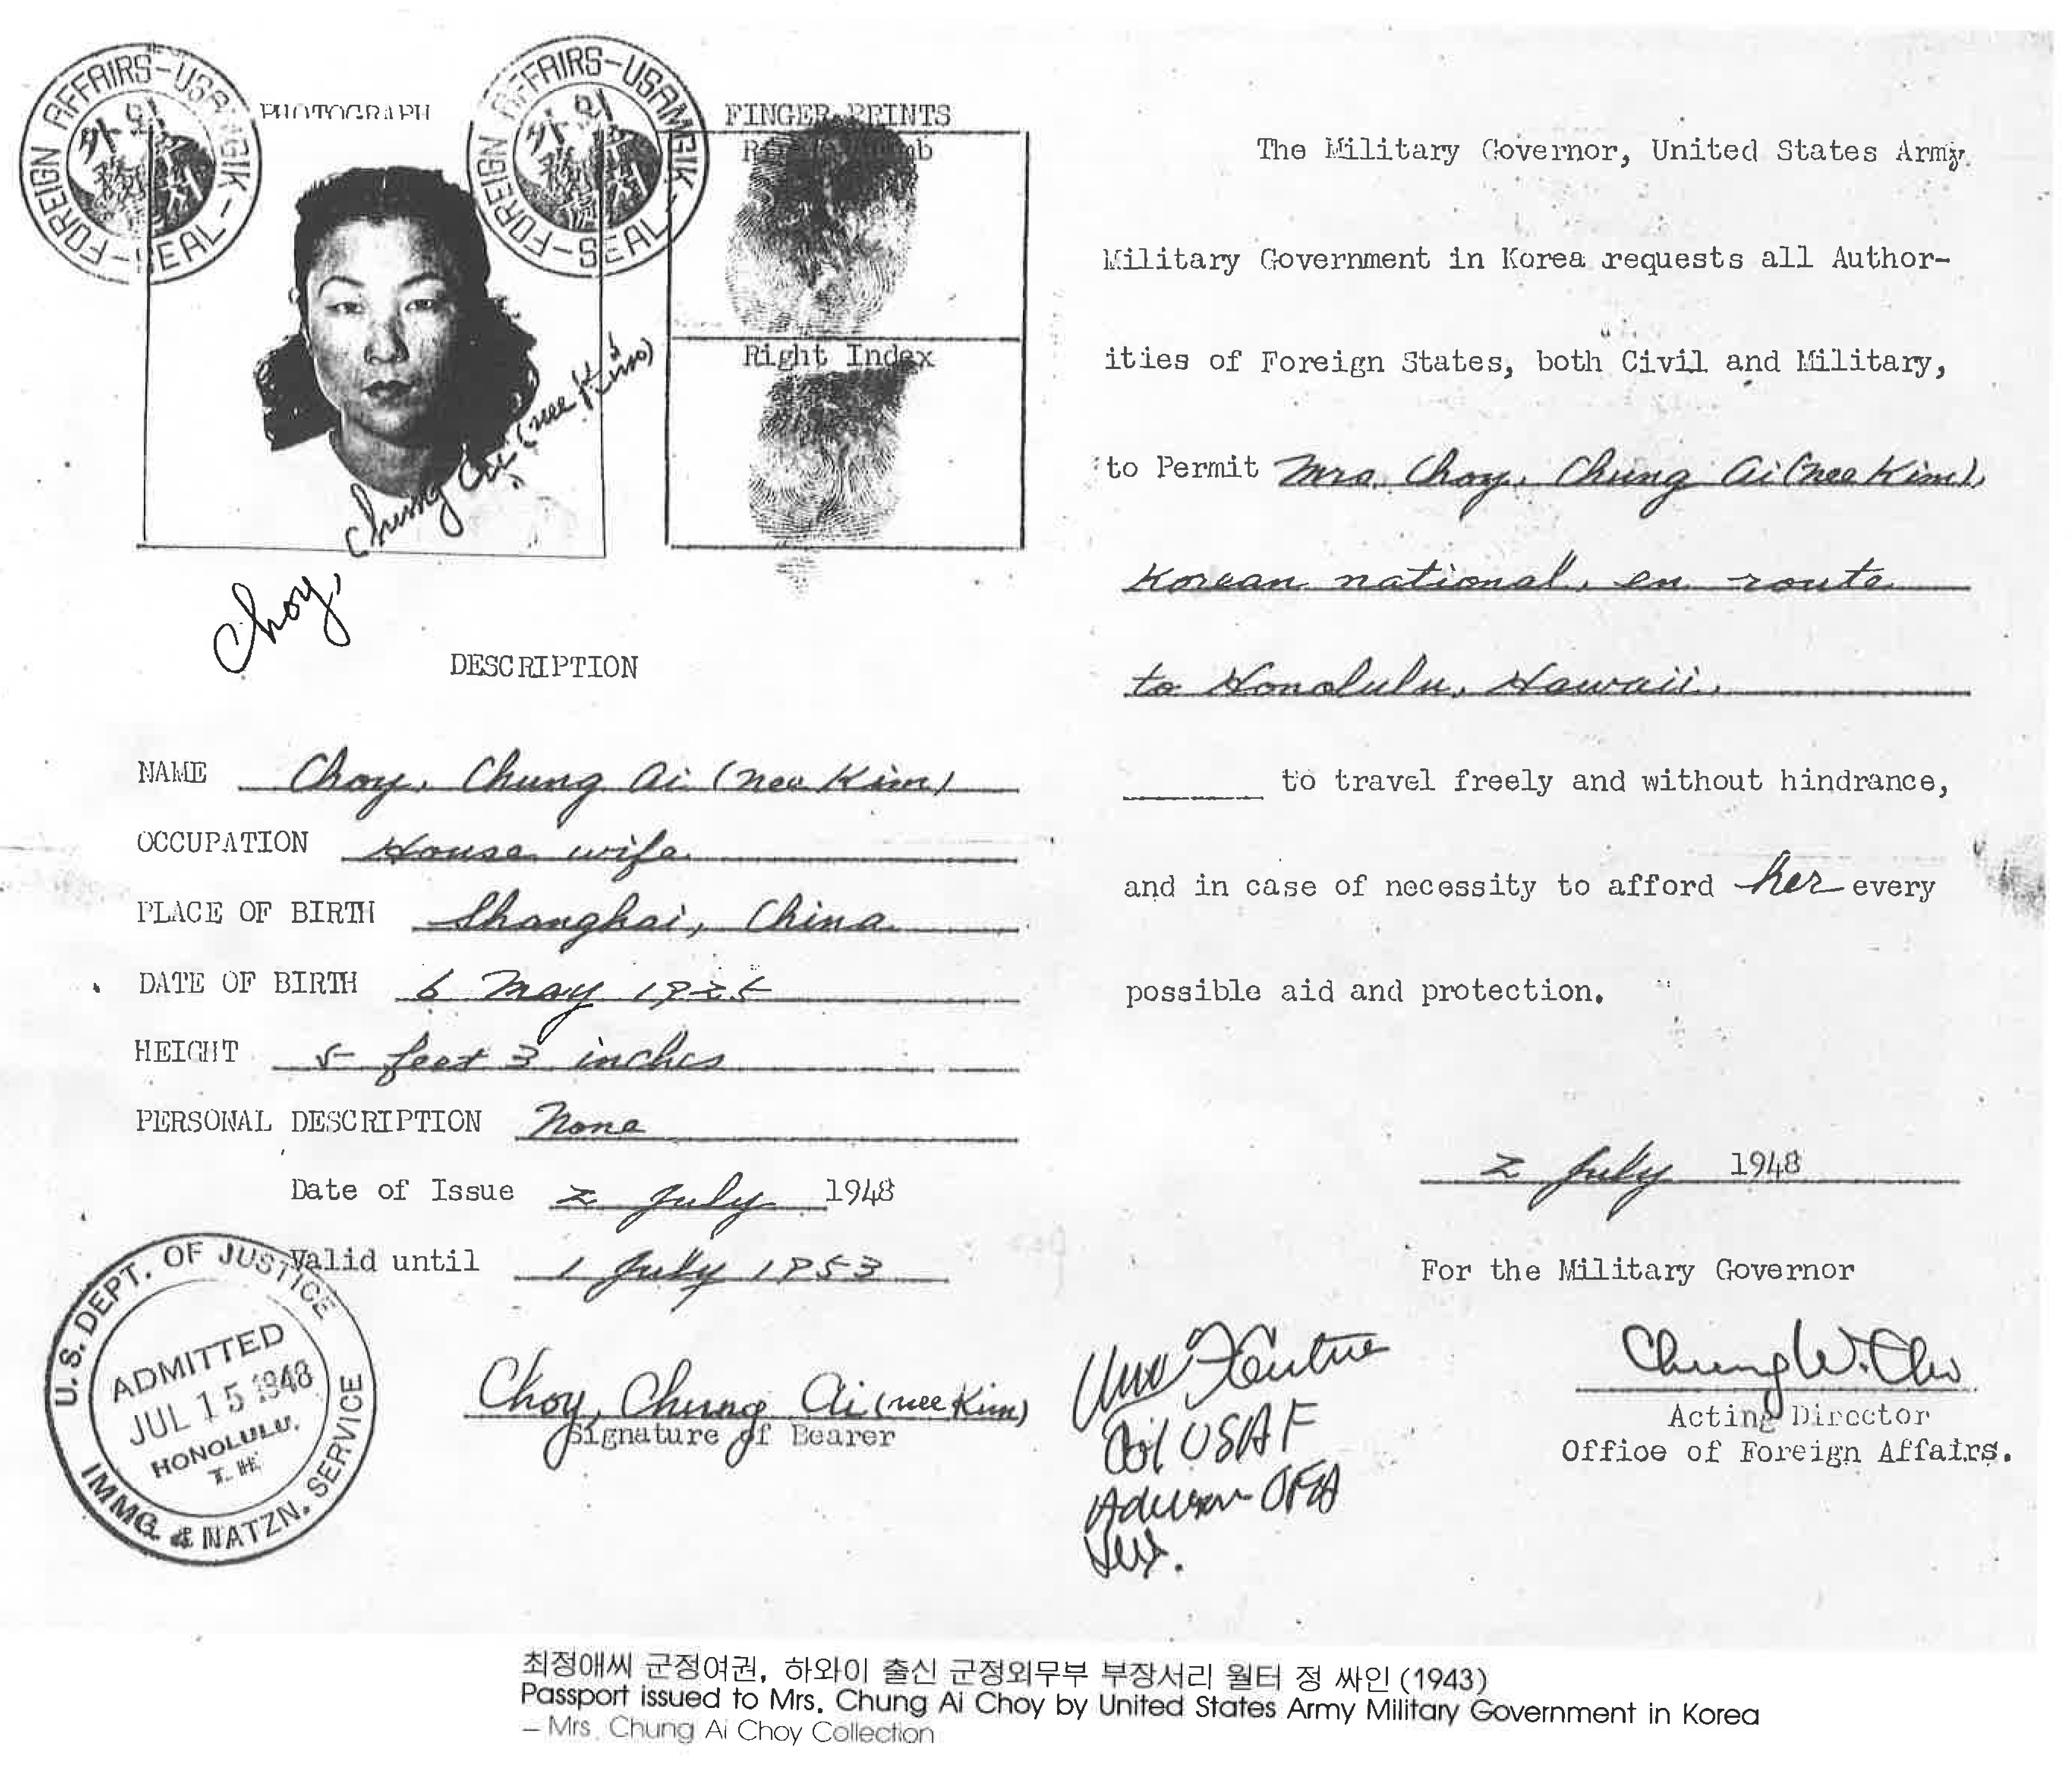 FOREIGN AFFAIRS-USAMGIK-SEAL-
外務處
외무처
PHOTOGRAPH
FOREIGN AFFAIRS-USAMGIK-SEAL-
外務處
외무처
FINGER PRINTS
Right Thumb
Right Index
Choy, Chung Ai (nee Kim)
DESCRIPTION
NAME Choy, Chung Ai (nee Kim)
OCCUPATION House wife
PLACE OF BIRTH Shanghai, China
DATE OF BIRTH 6 May 1925
HEIGHT 5 feet 3 inches
PERSONAL DESCRIPTION None
Date of Issue 2 July 1948
Valid until 1 July 1953
Choy, Chung Ai (nee Kim)
Signature of Bearer
U.S. DEPT. OF JUSTICE
ADMITTED
JUL 15 1948
HONOLULU,
T. H.
IMMG. & NATZN. SERVICE
The Military Governor, United States Army
Military Government in Korea requests all Author-
ities of Foreign States, both Civil and Military,
to Permit Mrs. Choy, Chung Ai (nee Kim),
Korean national, en route
to Honolulu, Hawaii,
to travel freely and without hindrance,
and in case of necessity to afford her every
possible aid and protection.
2 July 1948
For the Military Governor
Chung W. Cho
Acting Director
Office of Foreign Affairs.
Col USAF
OFA
최정애씨 군정여권, 하와이 출신 군정외무부 부장서리 월터 정 싸인 (1943)
Passport issued to Mrs. Chung Ai Choy by United States Army Military Government in Korea
– Mrs. Chung Ai Choy Collection